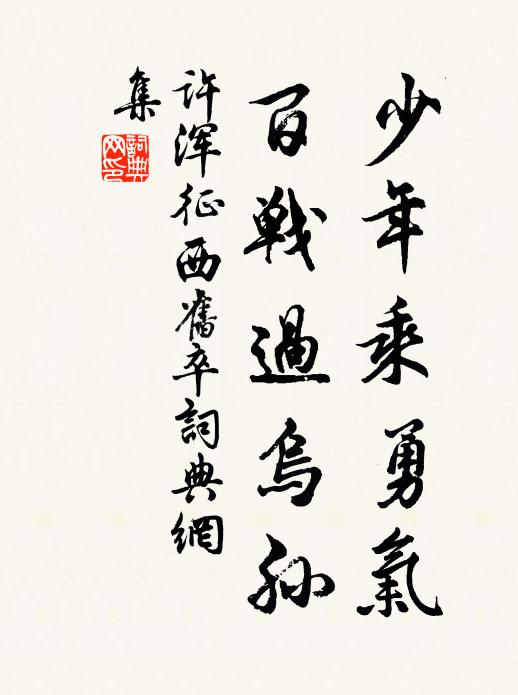 少年乘勇氣
百戰過烏孫
許渾征西舊卒詞典網
集
詞典
网印